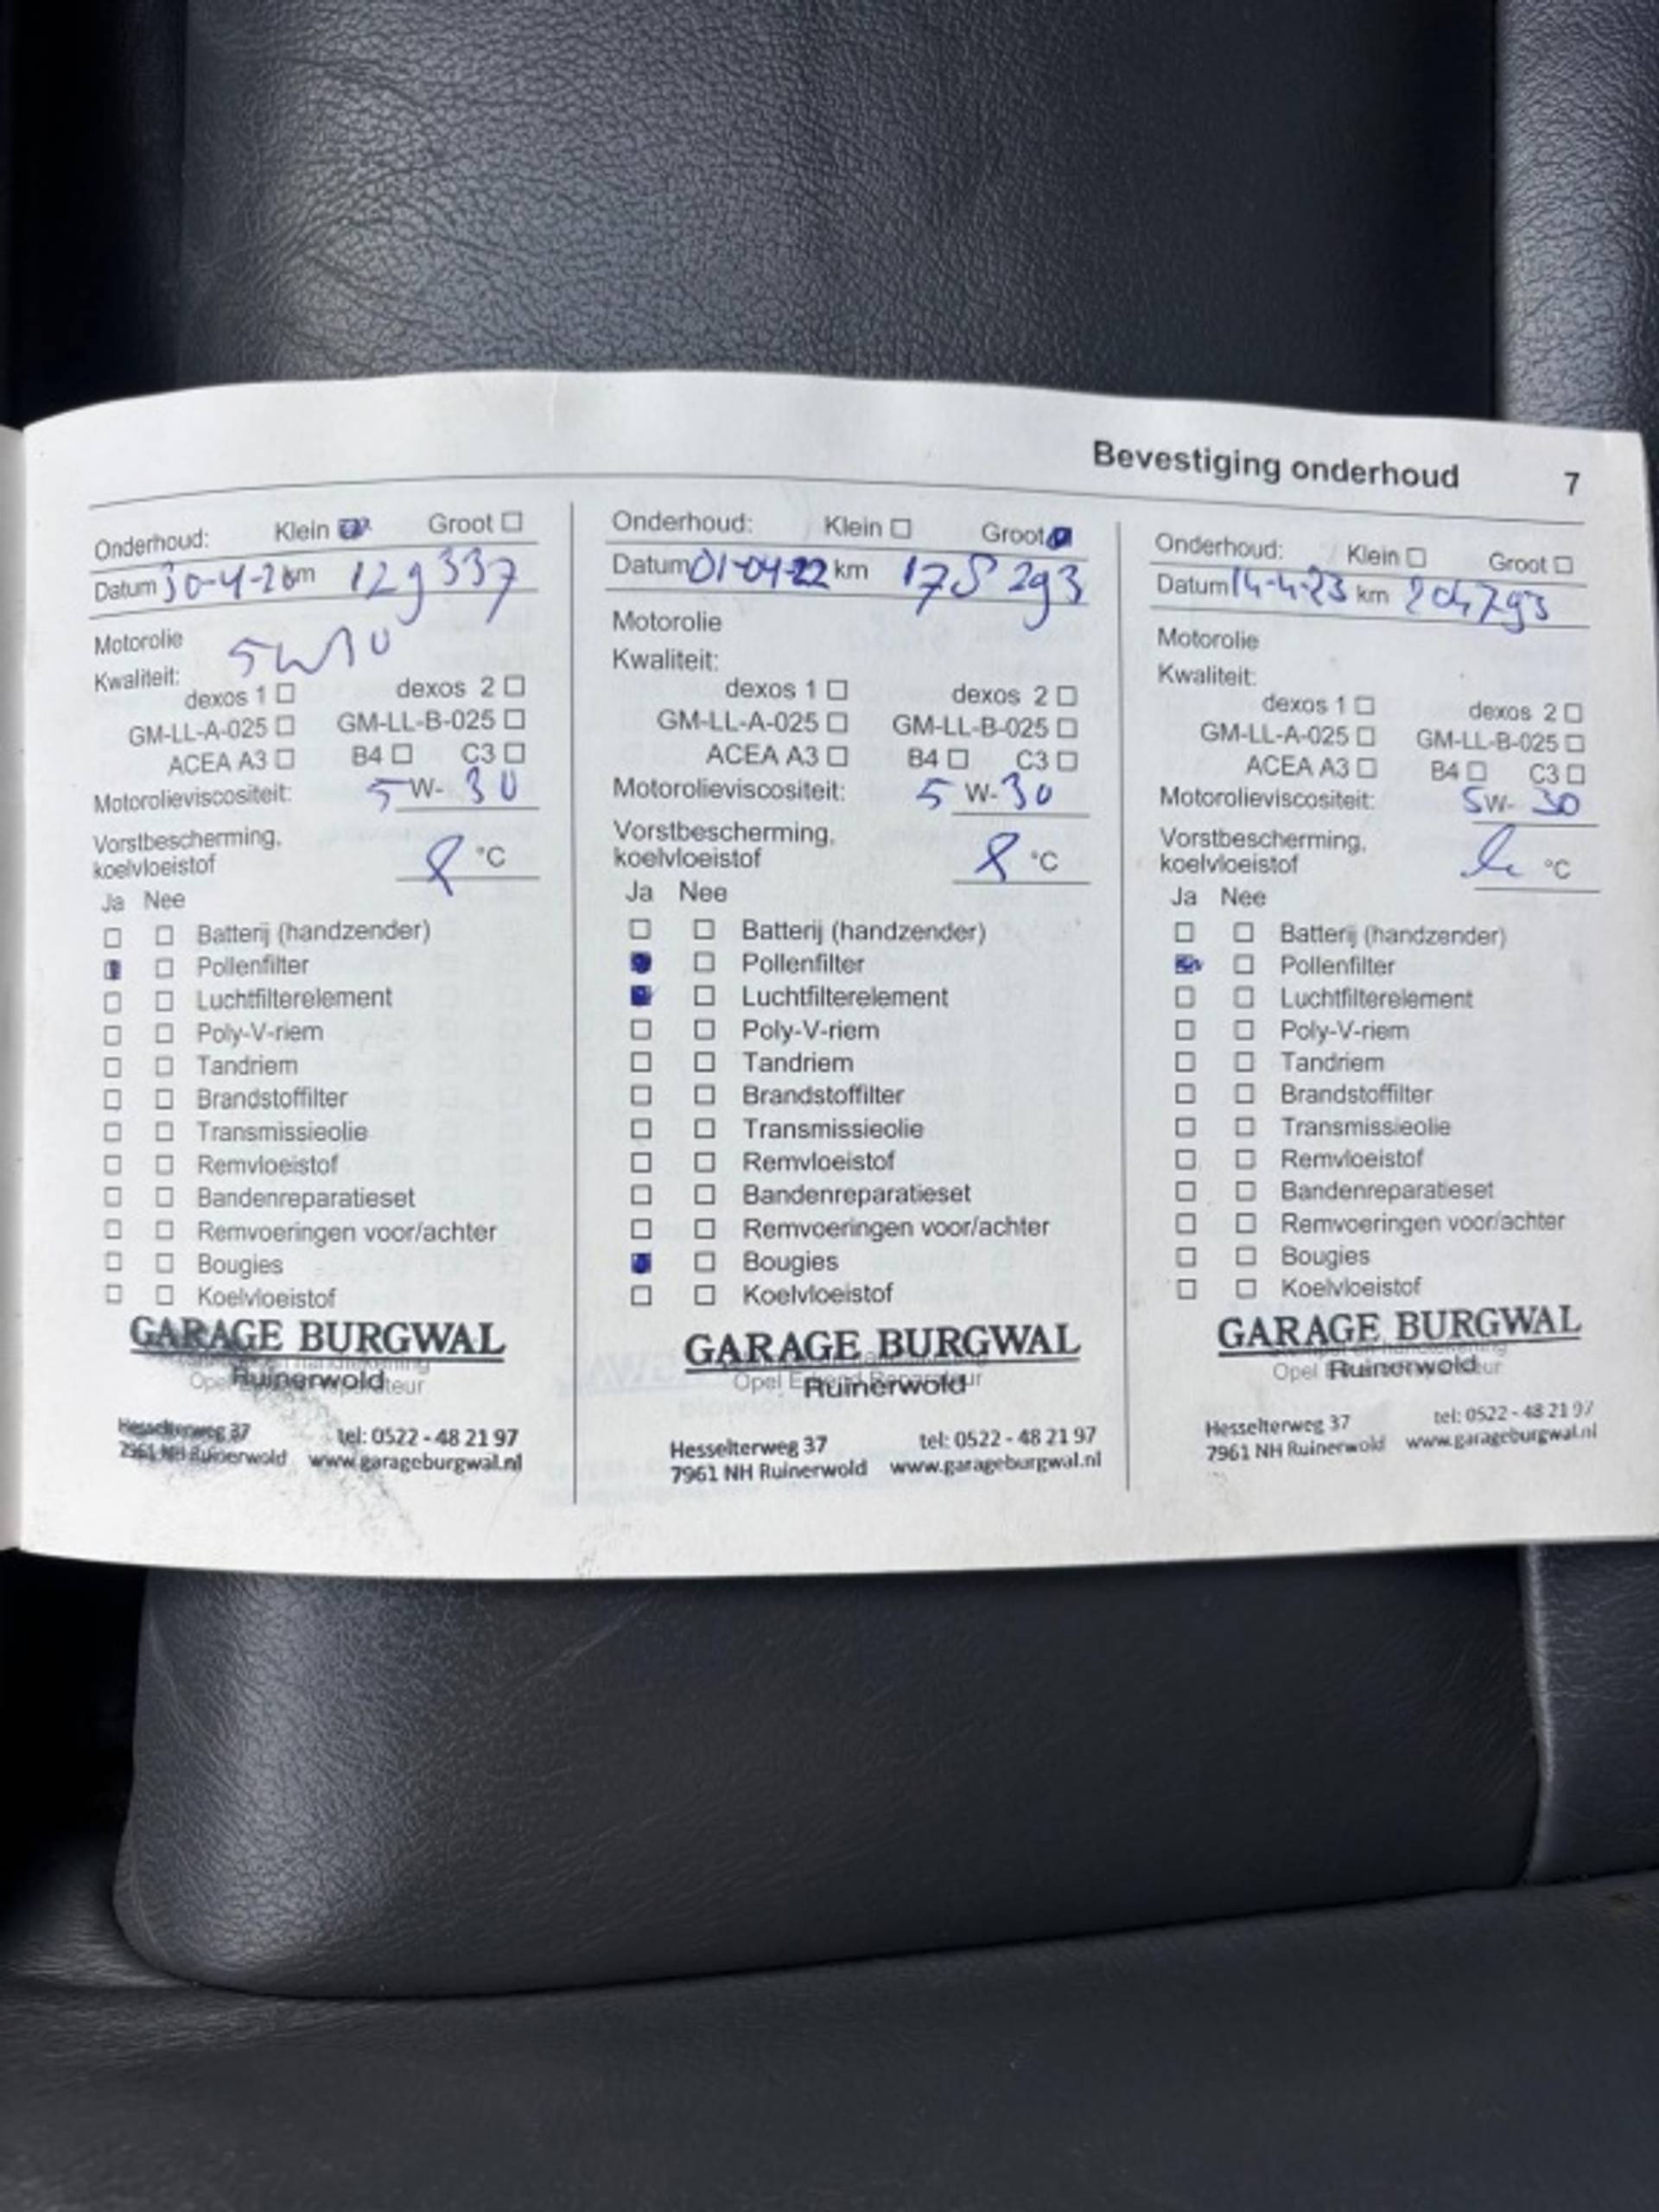 Bevestiging onderhoud 7
Onderhoud: Klein Groot
Datum 30-4-20 km 129337
Motorolie
Kwaliteit:
dexos 1 dexos 2
GM-LL-A-025 GM-LL-B-025
ACEA A3 B4 C3
Motorolieviscositeit: 5 W- 30
Vorstbescherming,
koelvloeistof °C
Ja Nee
Batterij (handzender)
Pollenfilter
Luchtfilterelement
Poly-V-riem
Tandriem
Brandstoffilter
Transmissieolie
Remvloeistof
Bandenreparatieset
Remvoeringen voor/achter
Bougies
Koelvloeistof
GARAGE BURGWAL
Ruinerwold
Hesselterweg 37 tel: 0522 - 48 21 97
7961 NH Ruinerwold www.garageburgwal.nl
Onderhoud: Klein Groot
Datum 01-04-22 km 178293
Motorolie
Kwaliteit:
dexos 1 dexos 2
GM-LL-A-025 GM-LL-B-025
ACEA A3 B4 C3
Motorolieviscositeit: 5 W- 30
Vorstbescherming,
koelvloeistof °C
Ja Nee
Batterij (handzender)
Pollenfilter
Luchtfilterelement
Poly-V-riem
Tandriem
Brandstoffilter
Transmissieolie
Remvloeistof
Bandenreparatieset
Remvoeringen voor/achter
Bougies
Koelvloeistof
GARAGE BURGWAL
Opel Erkend Reparateur
Ruinerwold
Hesselterweg 37 tel: 0522 - 48 21 97
7961 NH Ruinerwold www.garageburgwal.nl
Onderhoud: Klein Groot
Datum 14-4-23 km 204793
Motorolie
Kwaliteit:
dexos 1 dexos 2
GM-LL-A-025 GM-LL-B-025
ACEA A3 B4 C3
Motorolieviscositeit: 5 W- 30
Vorstbescherming,
koelvloeistof °C
Ja Nee
Batterij (handzender)
Pollenfilter
Luchtfilterelement
Poly-V-riem
Tandriem
Brandstoffilter
Transmissieolie
Remvloeistof
Bandenreparatieset
Remvoeringen voor/achter
Bougies
Koelvloeistof
GARAGE BURGWAL
Ruinerwold
Hesselterweg 37 tel: 0522 - 48 21 97
7961 NH Ruinerwold www.garageburgwal.nl